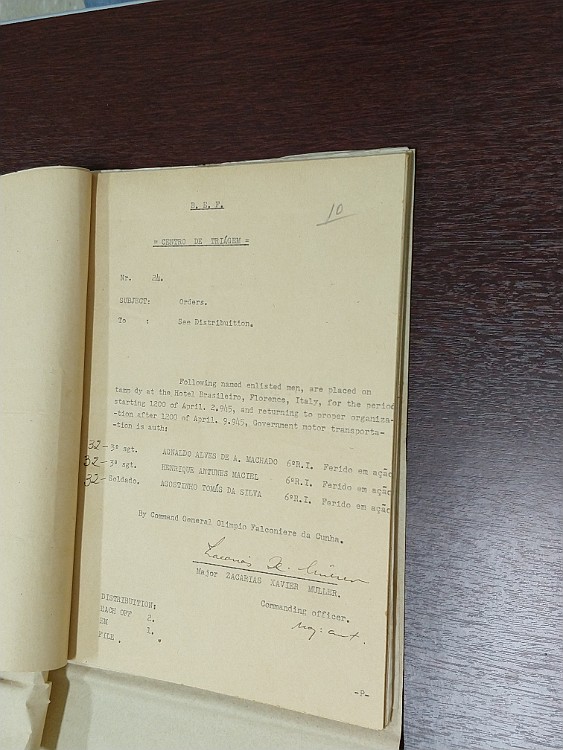 B. E. F.
10
= CENTRO DE TRIÁGEM =
Nr. 24.
SUBJECT: Orders.
To : See Distribuition.
Following named enlisted men, are placed on
temp dy at the Hotel Brasileiro, Florence, Italy, for the period
starting 1200 of April. 2.945, and returning to proper organiza-
-tion after 1200 of April. 9.945, Government motor transporta-
-tion is auth;
32 - 3º sgt. AGNALDO ALVES DE A. MACHADO 6ºR.I. Ferido em ação
32 - 3º sgt. HENRIQUE ANTUNES MACIEL 6ºR.I. Ferido em ação
32 - Soldado. AGOSTINHO TOMÁS DA SILVA 6ºR.I. Ferido em ação
By Command General Olimpio Falconiere da Cunha.
Zacarias X. Müller
Major ZACARIAS XAVIER MULLER.
Commanding officer.
DISTRIBUTION;
EACH OFF 2.
EM 1.
FILE .
-P-